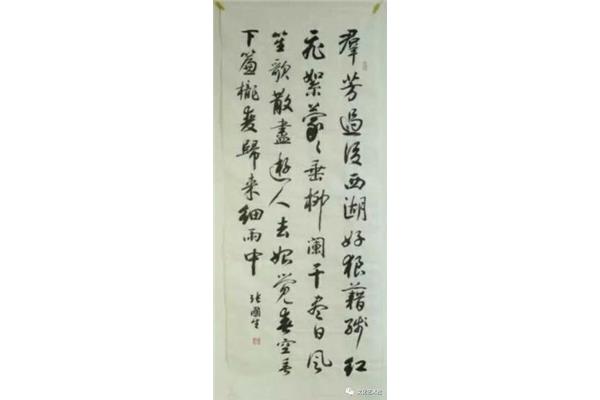 羣芳過後西湖好狼藉残紅
飛絮蒙〻垂柳闌干尽日風
笙歌散盡遊人去始覺春空垂
下簾櫳歸来細雨中
張國生